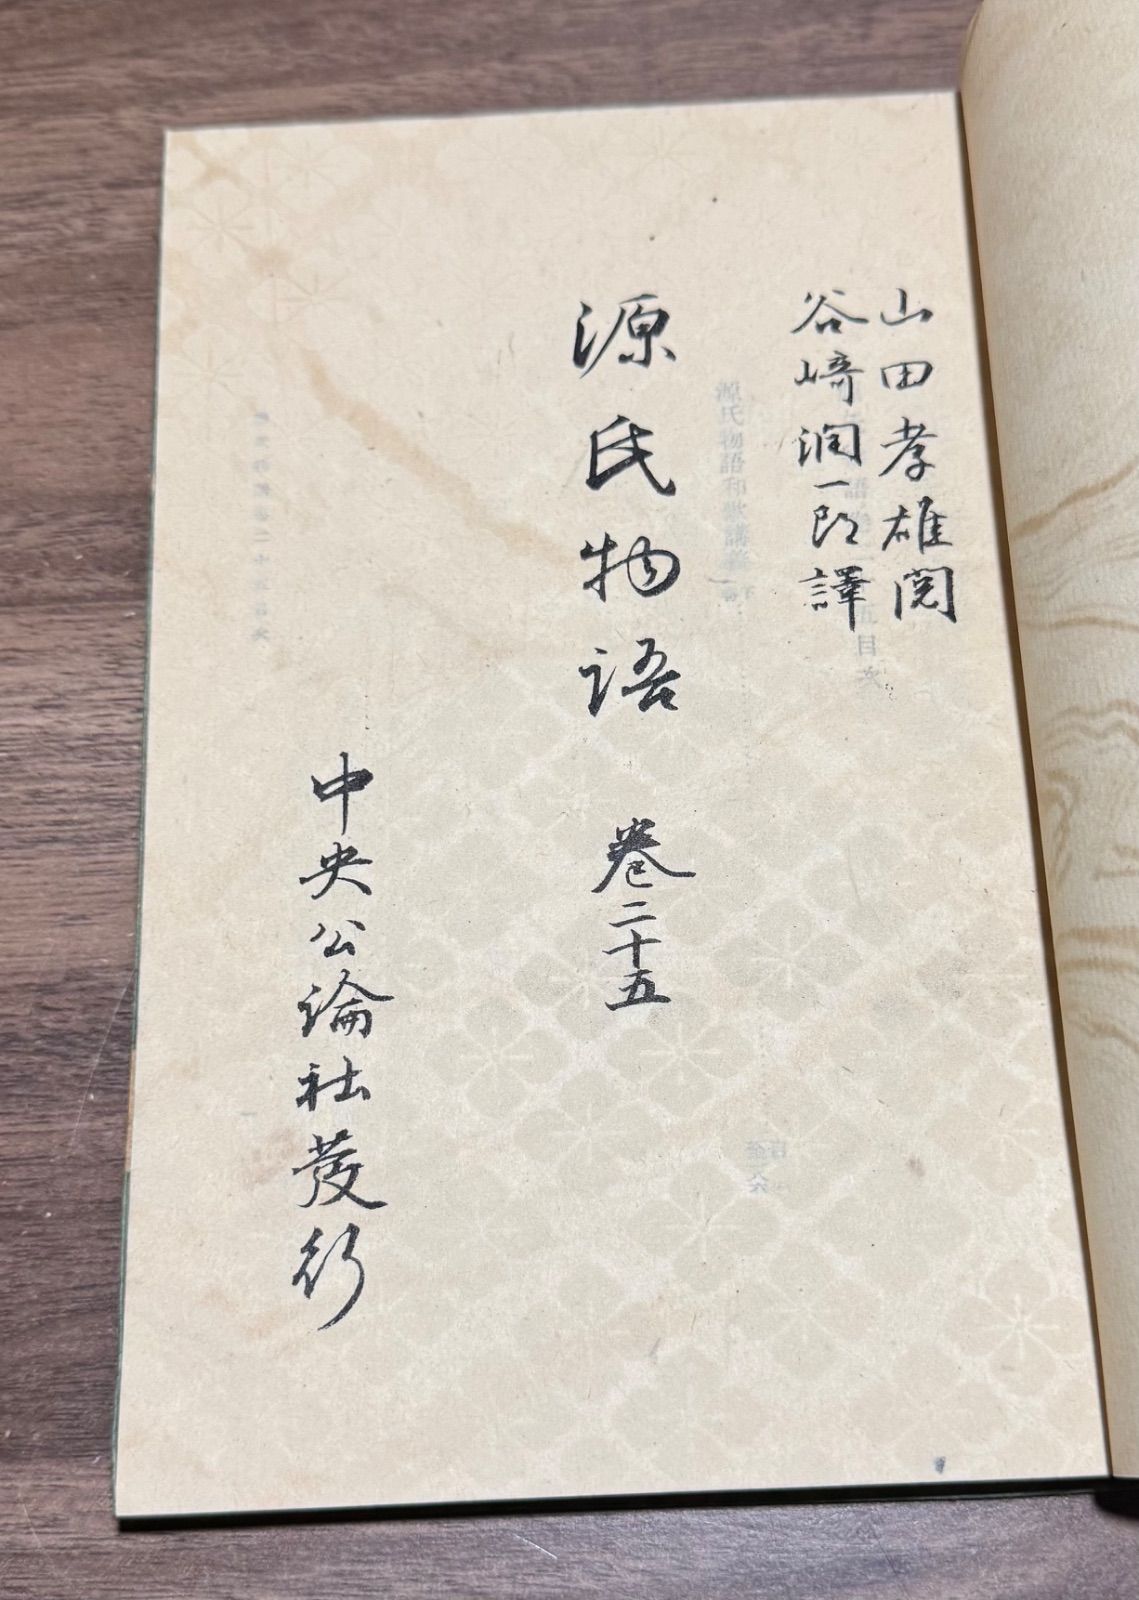 山田孝雄閲
谷崎潤一郎譯
源氏物語 卷二十五
中央公論社發行